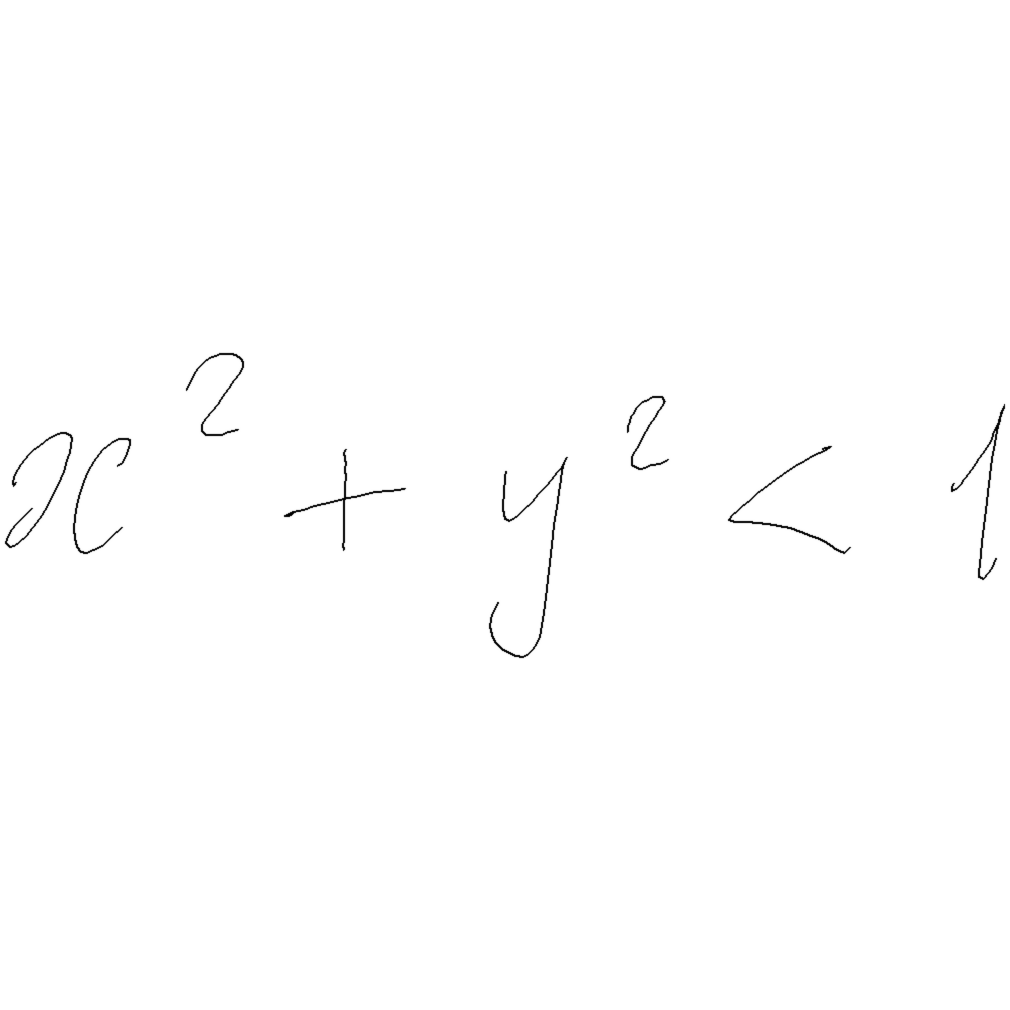 x² + y² < 1